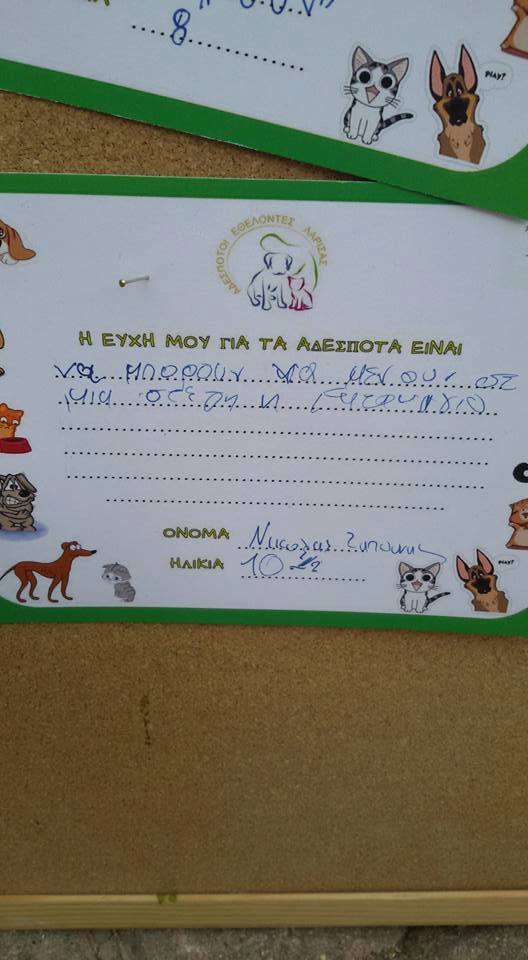 8
play?
ΑΔΕΣΠΟΤΟΙ ΕΘΕΛΟΝΤΕΣ ΛΑΡΙΣΑΣ
Η ΕΥΧΗ ΜΟΥ ΓΙΑ ΤΑ ΑΔΕΣΠΟΤΑ ΕΙΝΑΙ
να μπορουν να μενουν σε
μια στεγη η
ΟΝΟΜΑ Νικολας
ΗΛΙΚΙΑ 10
play?